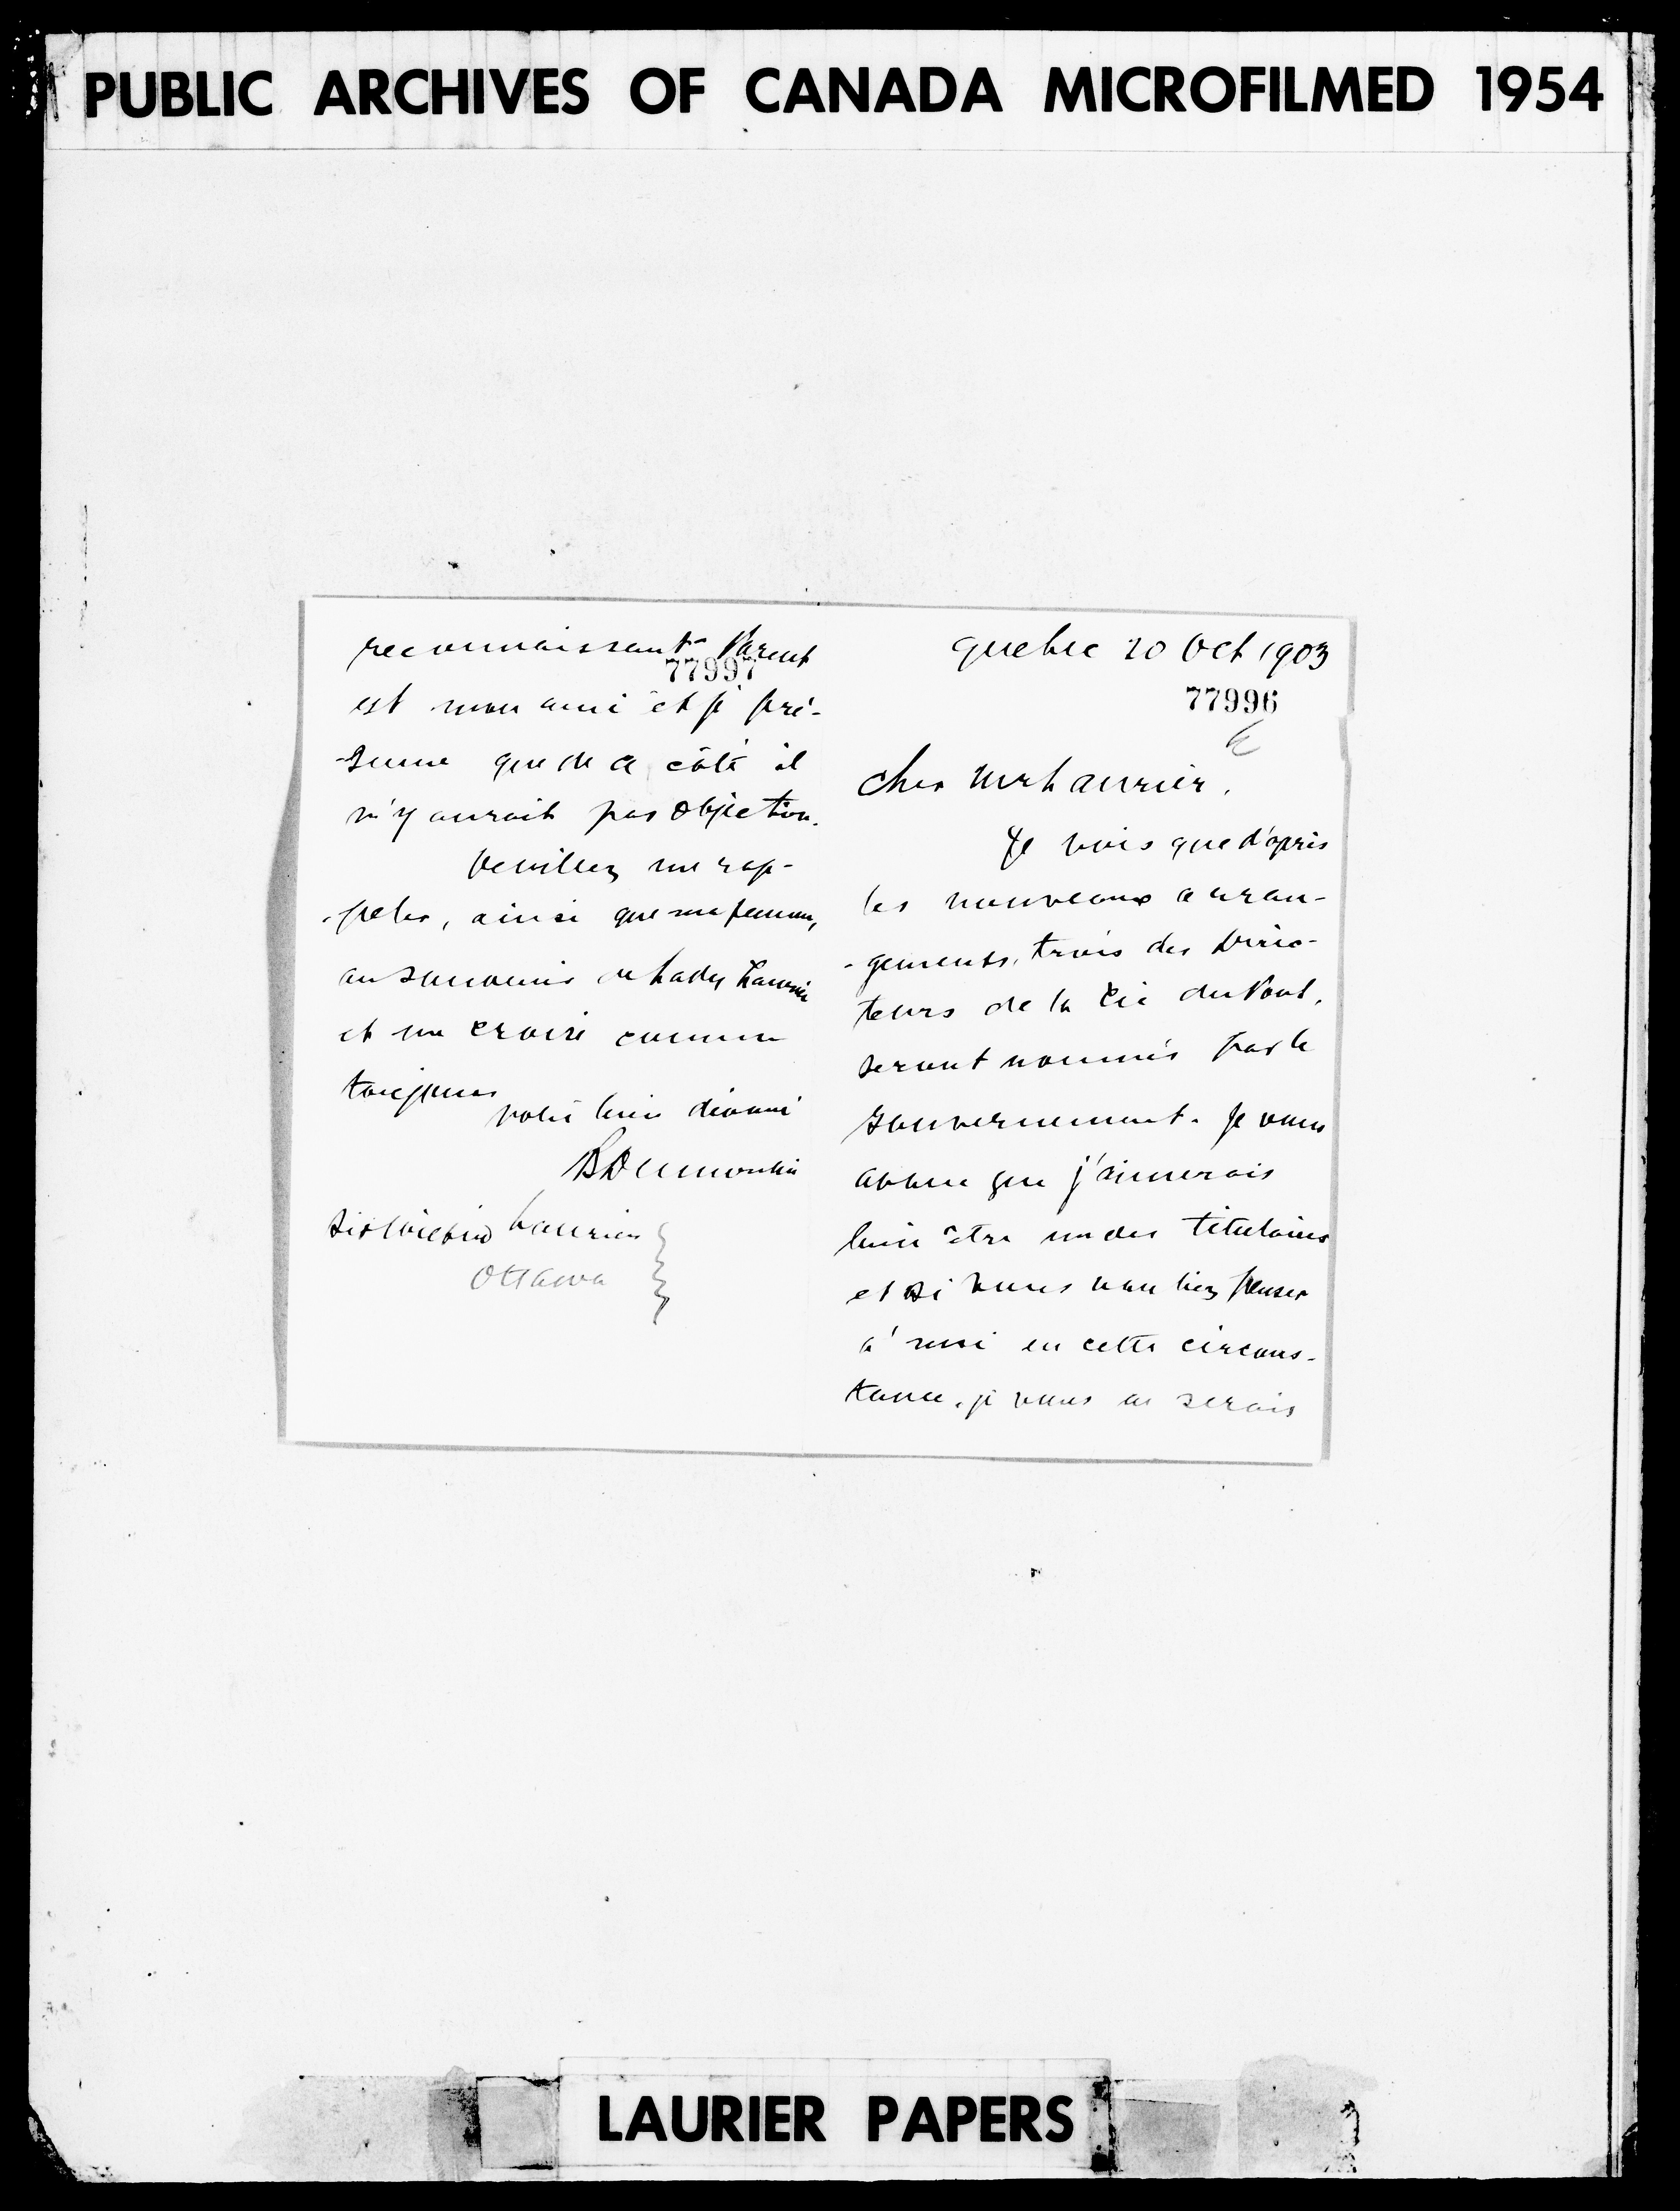 PUBLIC ARCHIVES OF CANADA MICROFILMED 1954
Quebec 20 Oct 1903
77996
Cher Mr Laurier,
Je vois que d'après
les nouveaux arran-
-gements, trois des Direc-
teurs de la Cie du Pont,
seront nommés par le
Gouvernement. Je vous
avoue que j'aimerais
bien être un des titulaires
et si vous vouliez penser
à moi en cette circons-
tance, je vous en serais
reconnaissant- Parent
77997
est mon ami et je pré-
-sume que de ce côté il
n'y aurait pas objection.
Veuillez me rap-
-peler, ainsi que ma femme,
au souvenir de Lady Laurier
et me croire comme
toujours
votre bien dévoué
P B Dumoulin
Sir Wilfrid Laurier
Ottawa
LAURIER PAPERS